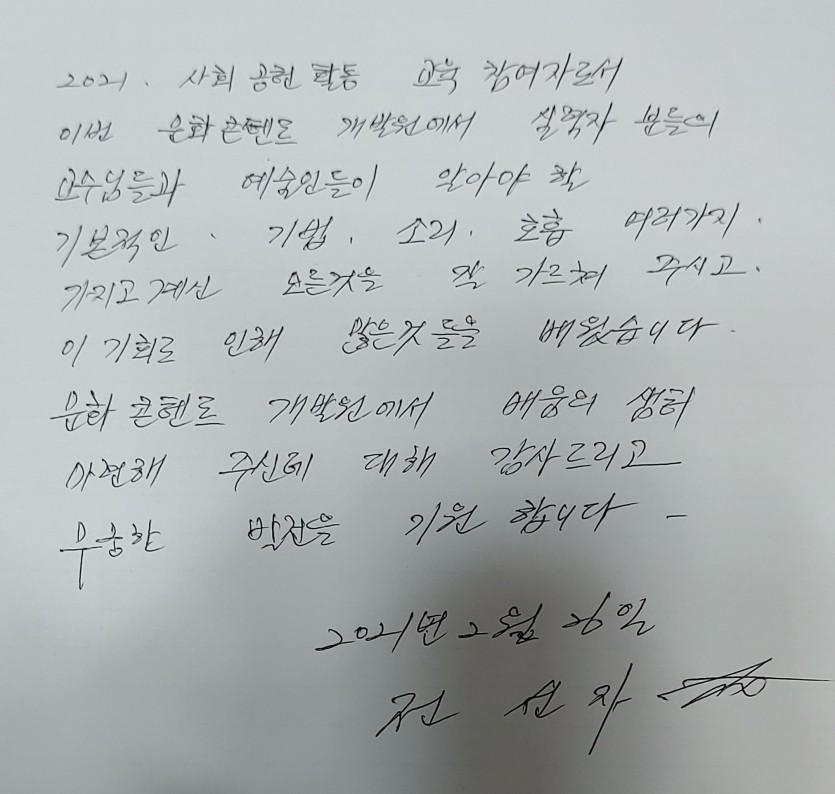 2021. 사회 공헌 활동 교육 참여자로서
이번 문화콘텐츠 개발원에서 실력자 분들의
교수님들과 예술인들이 알아야 할
기본적인. 기법. 소리. 호흡 여러가지.
가지고 계신 모든것을 잘 가르쳐 주시고.
이 기회로 인해 많은것 들을 배웠습니다.
문화콘텐츠 개발원에서 배움의
마련해 주신데 대해 감사드리고
무궁한 발전을 기원 합니다 -
2021년 2월 26일
전 선 자